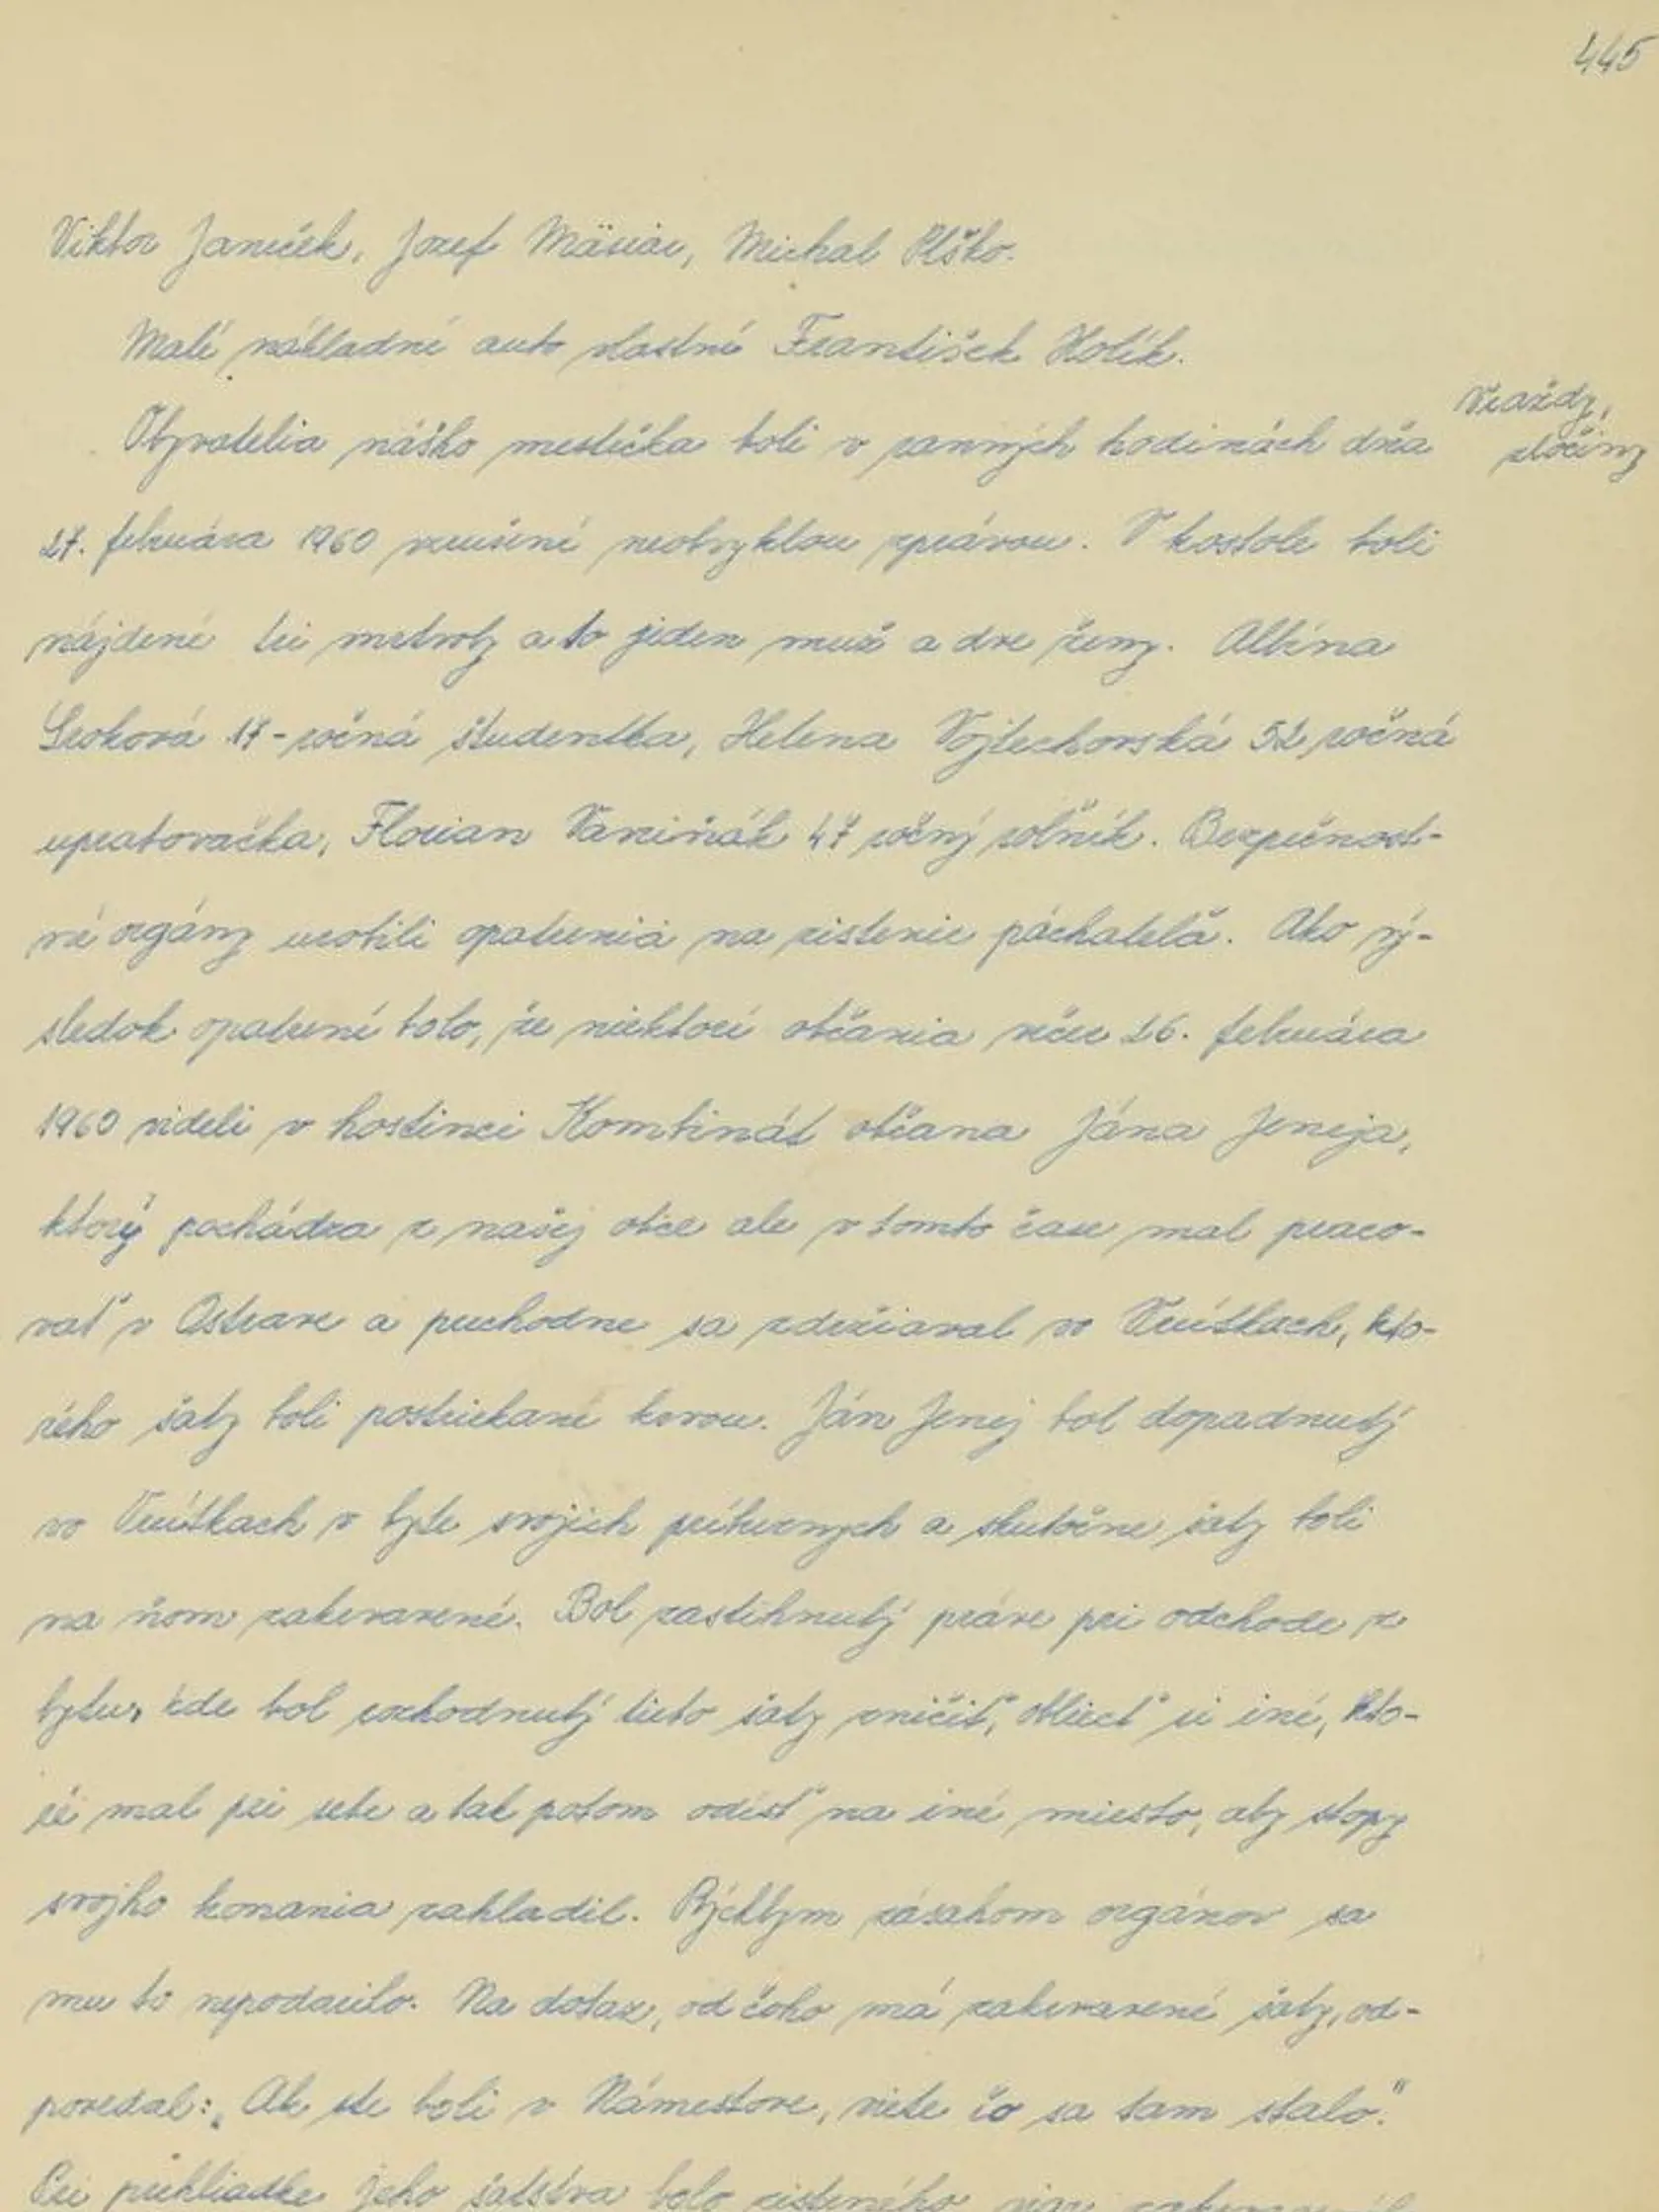 445
Viktor Janeček, Jozef Mäsiar, Michal Plško.
Malé nákladné auto vlastní František Holík.
Vraždy,
zločiny
Obyvatelia nášho mestečka boli v ranných hodinách dňa
27. februára 1960 vzrušené neobvyklou zprávou. V kostole boli
nájdené tri mŕtvoly a to jeden muž a dve ženy. Albína
Sroková 17-ročná študentka, Helena Vojtechovská 52 ročná
upratovačka, Florian 47 ročný roľník. Bezpečnost-
né orgány urobili opatrenia na zistenie páchateľa. Ako vý-
sledok opatrení bolo, že niektorí občania večer 26. februára
1960 videli v hostinci Kombinát občana Jána Jeneja,
ktorý pochádza z našej obce ale v tomto čase mal praco-
vať v Ostrave a prechodne sa zdržiaval vo Vrútkach, kto-
rého šaty boli postriekané krvou. Ján Jenej bol dopadnutý
vo Vrútkach v byte svojich príbuzných a skutočne šaty boli
na ňom zakrvavené. Bol zastihnutý práve pri odchode z
bytu, kde bol rozhodnutý tieto šaty zničiť, obliecť si iné, kto-
ré mal pri sebe a tak potom odísť na iné miesto, aby stopy
svojho konania zahladil. Rýchlym zásahom orgánov sa
mu to nepodarilo. Na dotaz, od čoho má zakrvavené šaty, od-
povedal: „Ak ste boli v Námestove, viete čo sa tam stalo."
Pri prehliadke jeho šatstva bolo zisteného viac